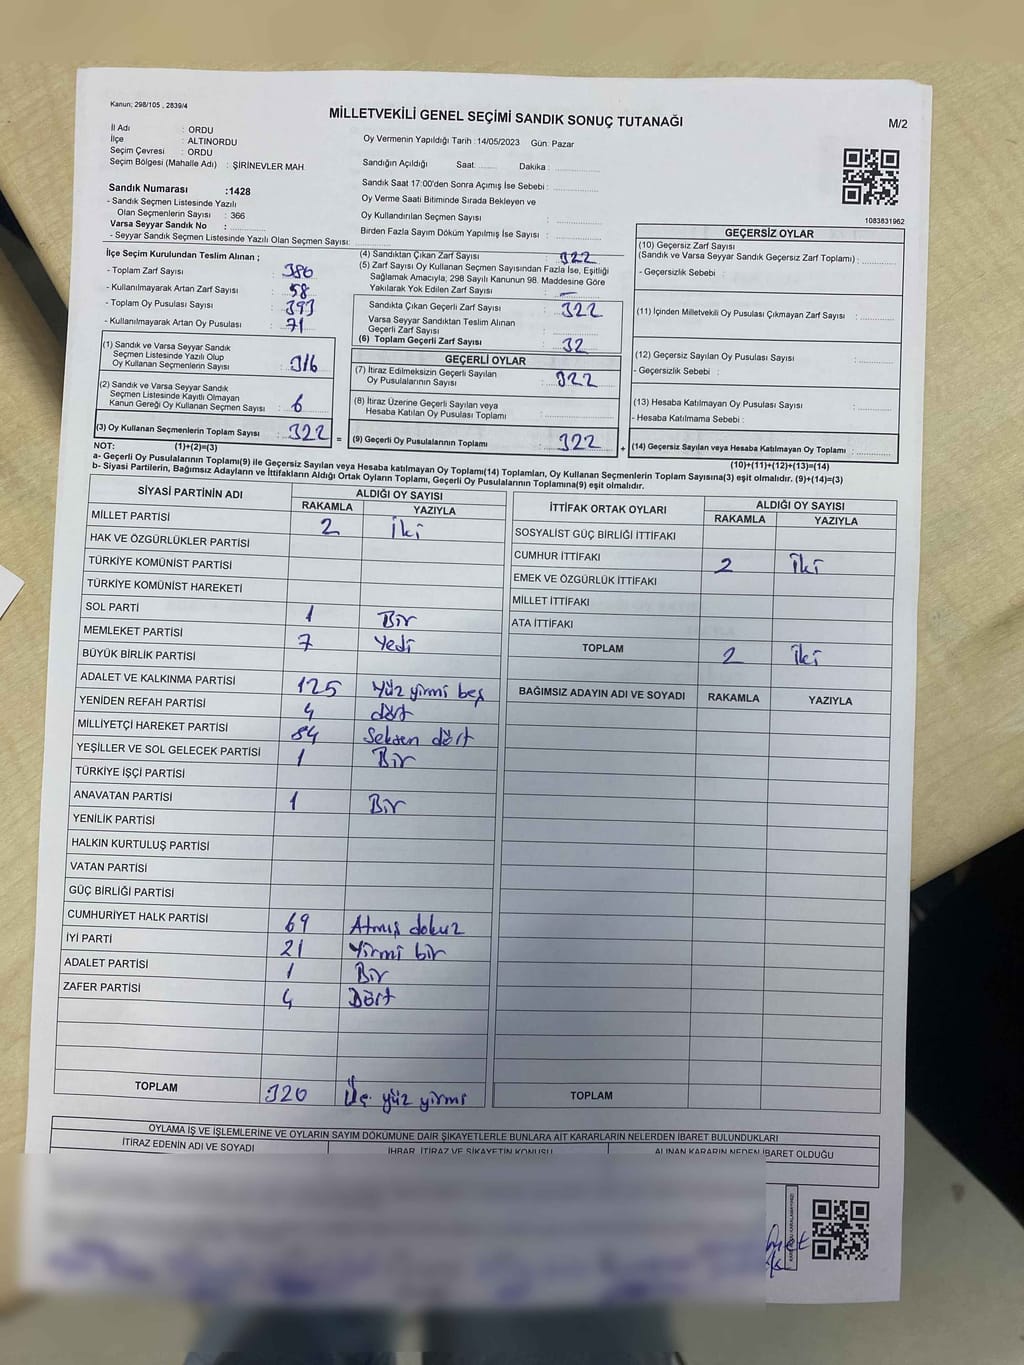 Kanun; 298/105 , 2839/4
MİLLETVEKİLİ GENEL SEÇİMİ SANDIK SONUÇ TUTANAĞI
M/2
İl Adı : ORDU
İlçe : ALTINORDU
Seçim Çevresi : ORDU
Seçim Bölgesi (Mahalle Adı) : ŞİRİNEVLER MAH
Sandık Numarası :1428
- Sandık Seçmen Listesinde Yazılı
Olan Seçmenlerin Sayısı : 366
Varsa Seyyar Sandık No :
- Seyyar Sandık Seçmen Listesinde Yazılı Olan Seçmen Sayısı:
Oy Vermenin Yapıldığı Tarih : 14/05/2023 Gün: Pazar
Sandığın Açıldığı Saat: Dakika :
Sandık Saat 17:00'den Sonra Açımış İse Sebebi :
Oy Verme Saati Bitiminde Sırada Bekleyen ve
Oy Kullandırılan Seçmen Sayısı :
Birden Fazla Sayım Döküm Yapılmış İse Sayısı :
1083831962
İlçe Seçim Kurulundan Teslim Alınan ;
- Toplam Zarf Sayısı : 386
- Kullanılmayarak Artan Zarf Sayısı : 58
- Toplam Oy Pusulası Sayısı : 393
- Kullanılmayarak Artan Oy Pusulası : 71
(1) Sandık ve Varsa Seyyar Sandık
Seçmen Listesinde Yazılı Olup
Oy Kullanan Seçmenlerin Sayısı : 316
(2) Sandık ve Varsa Seyyar Sandık
Seçmen Listesinde Kayıtlı Olmayan
Kanun Gereği Oy Kullanan Seçmen Sayısı : 6
(3) Oy Kullanan Seçmenlerin Toplam Sayısı : 322 =
(1)+(2)=(3)
(4) Sandıktan Çıkan Zarf Sayısı : 322
(5) Zarf Sayısı Oy Kullanan Seçmen Sayısından Fazla İse, Eşitliği
Sağlamak Amacıyla; 298 Sayılı Kanunun 98. Maddesine Göre
Yakılarak Yok Edilen Zarf Sayısı : –
Sandıkta Çıkan Geçerli Zarf Sayısı : 322
Varsa Seyyar Sandıktan Teslim Alınan
Geçerli Zarf Sayısı :
(6) Toplam Geçerli Zarf Sayısı : 32
GEÇERLİ OYLAR
(7) İtiraz Edilmeksizin Geçerli Sayılan
Oy Pusulalarının Sayısı : 322
(8) İtiraz Üzerine Geçerli Sayılan veya
Hesaba Katılan Oy Pusulası Toplamı :
(9) Geçerli Oy Pusulalarının Toplamı : 322 +
GEÇERSİZ OYLAR
(10) Geçersiz Zarf Sayısı
(Sandık ve Varsa Seyyar Sandık Geçersiz Zarf Toplamı) :
- Geçersizlik Sebebi :
(11) İçinden Milletvekili Oy Pusulası Çıkmayan Zarf Sayısı :
(12) Geçersiz Sayılan Oy Pusulası Sayısı :
- Geçersizlik Sebebi :
(13) Hesaba Katılmayan Oy Pusulası Sayısı :
- Hesaba Katılmama Sebebi :
(14) Geçersiz Sayılan veya Hesaba Katılmayan Oy Toplamı :
(10)+(11)+(12)+(13)=(14)
NOT:
a- Geçerli Oy Pusulalarının Toplamı(9) ile Geçersiz Sayılan veya Hesaba katılmayan Oy Toplamı(14) Toplamları, Oy Kullanan Seçmenlerin Toplam Sayısına(3) eşit olmalıdır. (9)+(14)=(3)
b- Siyasi Partilerin, Bağımsız Adayların ve İttifakların Aldığı Ortak Oyların Toplamı, Geçerli Oy Pusulalarının Toplamına(9) eşit olmalıdır.
SİYASİ PARTİNİN ADI ALDIĞI OY SAYISI
RAKAMLA YAZIYLA
MİLLET PARTİSİ 2 İki
HAK VE ÖZGÜRLÜKLER PARTİSİ
TÜRKİYE KOMÜNİST PARTİSİ
TÜRKİYE KOMÜNİST HAREKETİ
SOL PARTİ 1 Bir
MEMLEKET PARTİSİ 7 Yedi
BÜYÜK BİRLİK PARTİSİ
ADALET VE KALKINMA PARTİSİ 125 Yüz yirmi beş
YENİDEN REFAH PARTİSİ 4 dört
MİLLİYETÇİ HAREKET PARTİSİ 84 Seksen dört
YEŞİLLER VE SOL GELECEK PARTİSİ 1 Bir
TÜRKİYE İŞÇİ PARTİSİ
ANAVATAN PARTİSİ 1 Bir
YENİLİK PARTİSİ
HALKIN KURTULUŞ PARTİSİ
VATAN PARTİSİ
GÜÇ BİRLİĞİ PARTİSİ
CUMHURİYET HALK PARTİSİ 69 Atmış dokuz
İYİ PARTİ 21 Yirmi bir
ADALET PARTİSİ 1 Bir
ZAFER PARTİSİ 4 Dört
TOPLAM 320 Üç yüz yirmi
İTTİFAK ORTAK OYLARI ALDIĞI OY SAYISI
RAKAMLA YAZIYLA
SOSYALİST GÜÇ BİRLİĞİ İTTİFAKI
CUMHUR İTTİFAKI 2 İki
EMEK VE ÖZGÜRLÜK İTTİFAKI
MİLLET İTTİFAKI
ATA İTTİFAKI
TOPLAM 2 İki
BAĞIMSIZ ADAYIN ADI VE SOYADI RAKAMLA YAZIYLA
TOPLAM
OYLAMA İŞ VE İŞLEMLERİNE VE OYLARIN SAYIM DÖKÜMÜNE DAİR ŞİKAYETLERLE BUNLARA AİT KARARLARIN NELERDEN İBARET BULUNDUKLARI
İTİRAZ EDENİN ADI VE SOYADI İHBAR, İTİRAZ VE ŞİKAYETİN KONUSU ALINAN KARARIN NEDEN İBARET OLDUĞU